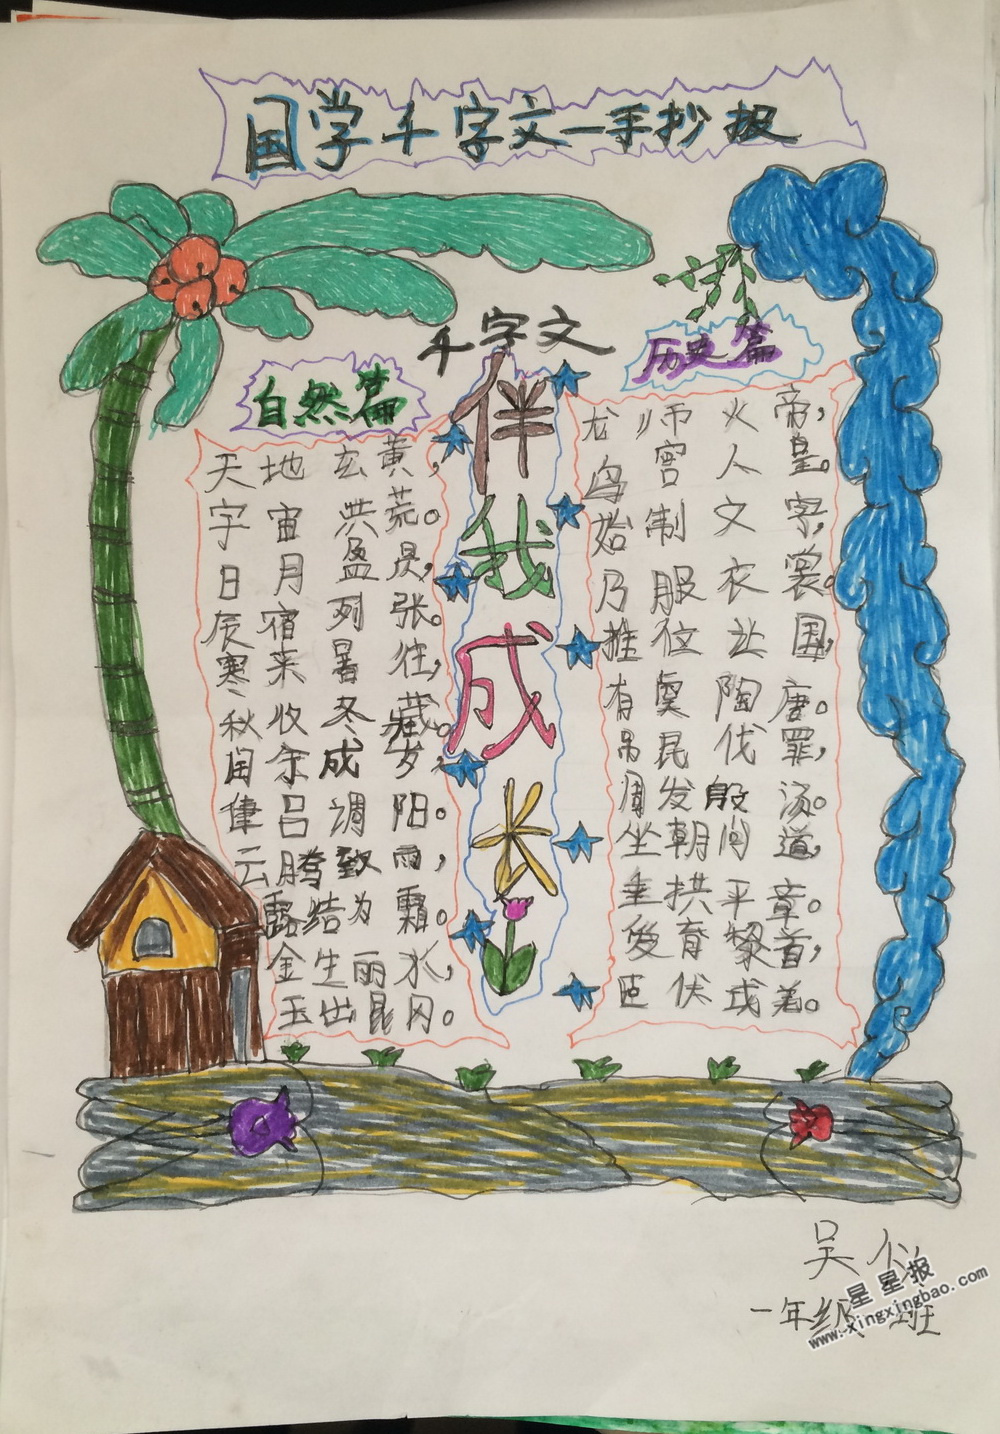 国学千字文一手抄报
千字文
伴我成长
自然篇
天地玄黄，
宇宙洪荒。
日月盈昃，
辰宿列张。
寒来暑往，
秋收冬藏。
闰余成岁，
律吕调阳。
云腾致雨，
露结为霜。
金生丽水，
玉出昆冈。
历史篇
龙师火帝，
鸟官人皇。
始制文字，
乃服衣裳。
推位让国，
有虞陶唐。
吊民伐罪，
周发殷汤。
坐朝问道，
垂拱平章。
爱育黎首，
臣伏戎羌。
吴
一年级 班
星星报
www.xingxingbao.com